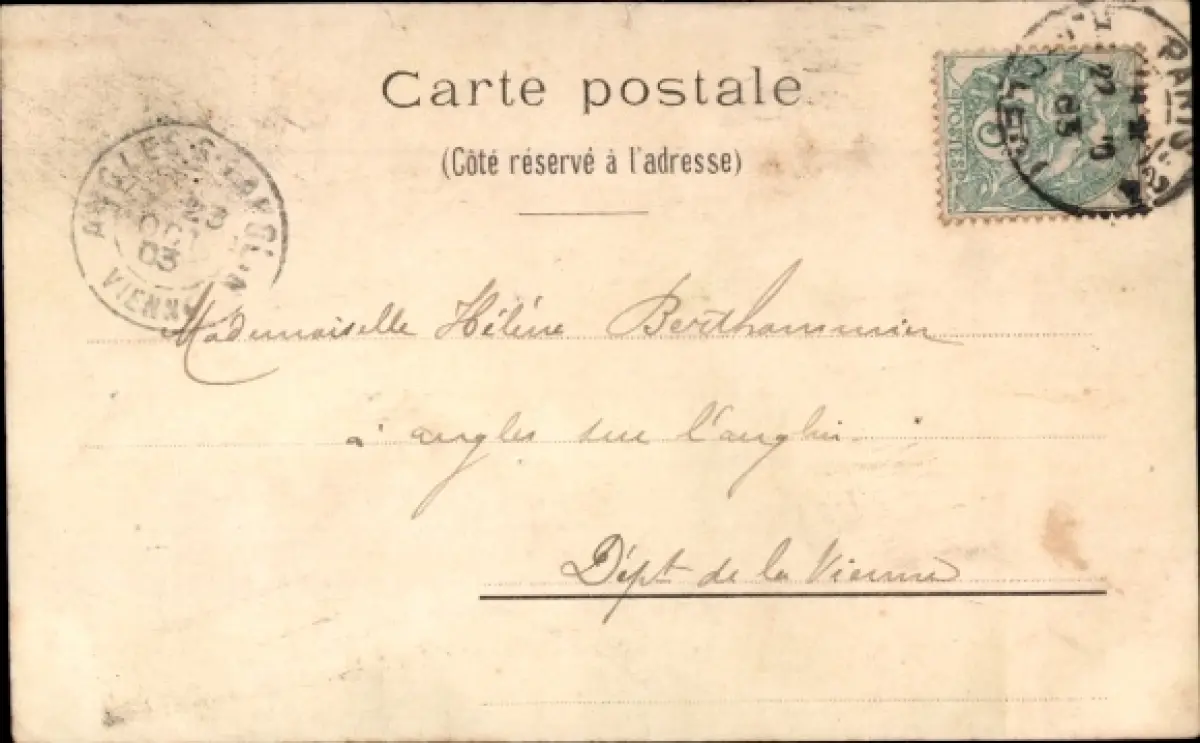 Carte postale
(Côté réservé à l'adresse)
POSTES 5
PARIS
22 10
03
ANGLES-S-L'ANGLIN
23
OCT
03
VIENNE
Mademoiselle Hélène
à angles sur l'anglin.
Dépt de la Vienne